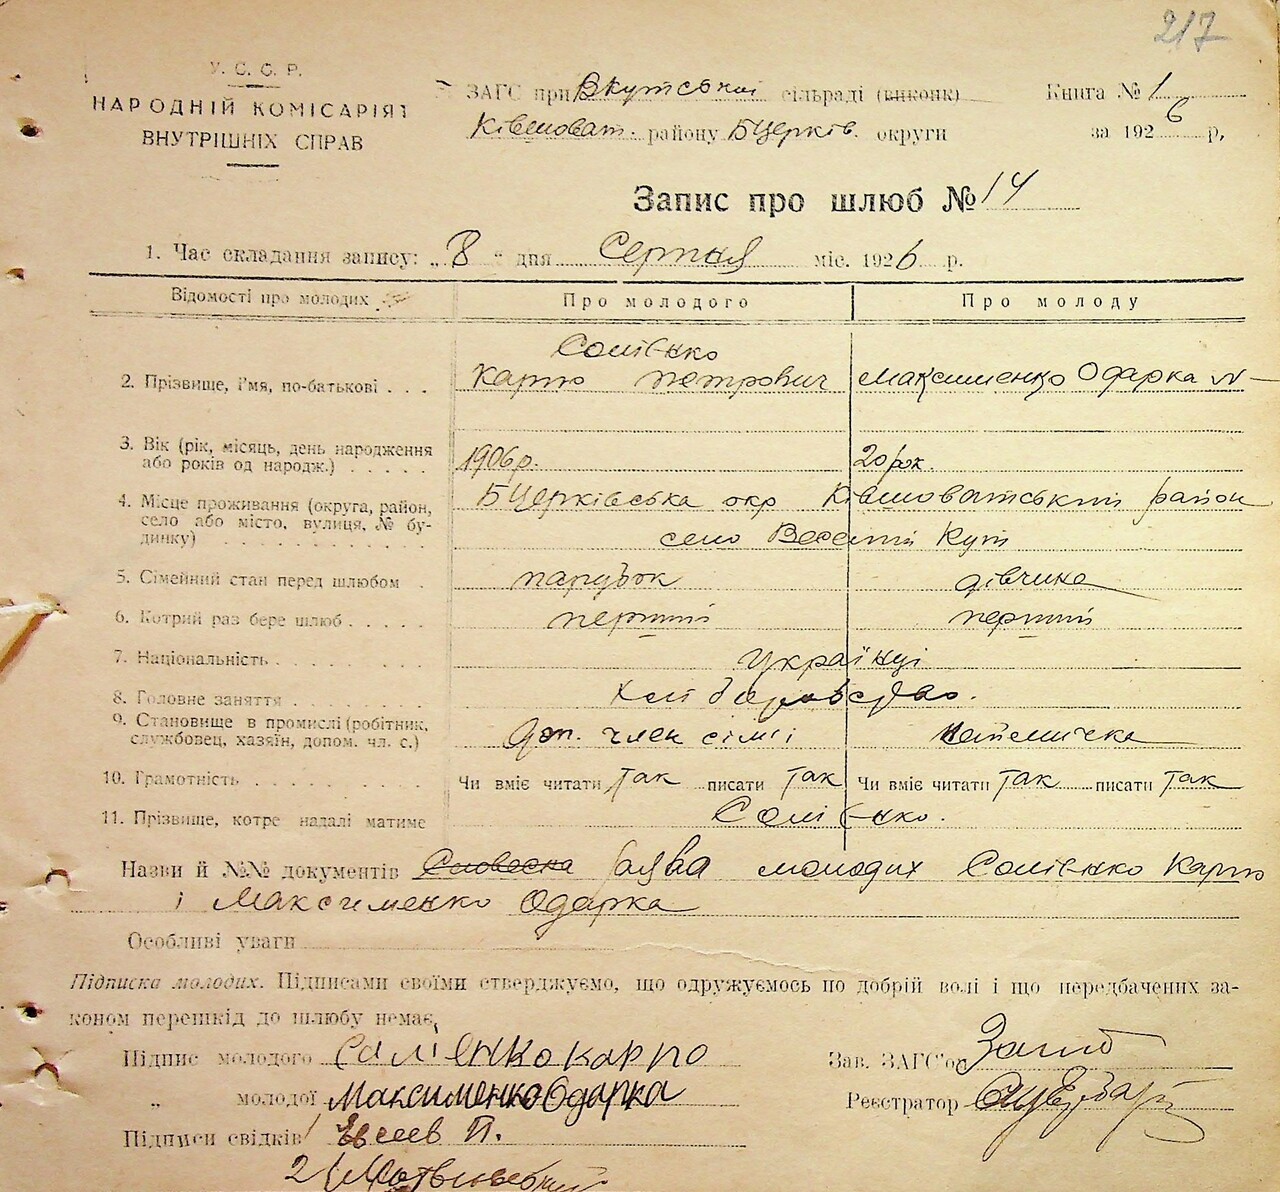 217
У. С. С. Р.
НАРОДНІЙ КОМІСАРІЯТ
ВНУТРІШНІХ СПРАВ
ЗАГС при Вкутській сільраді (виконк) Книга № 1
Ківшоват. району БЦерків. округи за 1926 р.
Запис про шлюб № 14
1. Час складання запису: „ 8 " дня Серпня міс. 1926 р.
Відомості про молодих Про молодого Про молоду
2. Прізвище, і'мя, по-батькові . . . Солієнко Карпо Петрович Максименко Одарка
3. Вік (рік, місяць, день народження або років од народж.) . . . . . 1906р. 20 рок.
4. Місце проживання (округа, район, село або місто, вулиця, № будинку) БЦерківська окр Ківшоватський район
село Веселий Кут
5. Сімейний стан перед шлюбом . парубок дівчина
6. Котрий раз бере шлюб . . . . . перший перший
7. Національність . . . . . . . . . українці
8. Головне заняття . . . . . . . . .
9. Становище в промислі (робітник, службовец, хазяїн, допом. чл. с.) доп. член сімї
10. Грамотність . . . . . . . . . . Чи вміє читати так писати так Чи вміє читати так писати так
11. Прізвище, котре надалі матиме Солієнко.
Назви й №№ документів Словесна заява молодих Солієнко Карпо
і Максименко Одарка
Особливі уваги
Підписка молодих. Підписами своїми стверджуємо, що одружуємось по добрій волі і що передбачених за-
коном перешкід до шлюбу немає,
Підпис молодого Саліенко карпо Зав. ЗАГС'ом
„ молодої Максименко Одарка Реєстратор
Підписи свідків 1 Евсеев П.
2